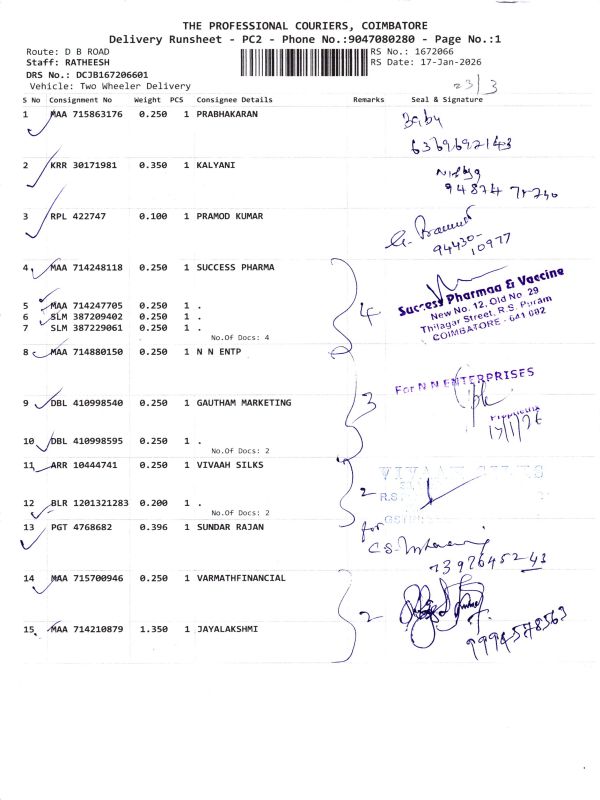 THE PROFESSIONAL COURIERS, COIMBATORE
Delivery Runsheet - PC2 - Phone No.:9047080280 - Page No.:1
Route: D B ROAD RS No.: 1672066
Staff: RATHEESH RS Date: 17-Jan-2026
DRS No.: DCJB167206601
Vehicle: Two Wheeler Delivery 23/3
S No Consignment No Weight PCS Consignee Details Remarks Seal & Signature
1 MAA 715863176 0.250 1 PRABHAKARAN Baby
6369692143
2 KRR 30171981 0.350 1 KALYANI
94874
3 RPL 422747 0.100 1 PRAMOD KUMAR
94430-
10977
4 MAA 714248118 0.250 1 SUCCESS PHARMA
Success Pharmaa & Vaccine
New No. 12, Old No. 29
Thilagar Street, R.S. Puram
COIMBATORE - 641 002
5 MAA 714247705 0.250 1 . 4
6 SLM 387209402 0.250 1 .
7 SLM 387229061 0.250 1 .
No.Of Docs: 4
8 MAA 714880150 0.250 1 N N ENTP
For N N ENTERPRISES
9 DBL 410998540 0.250 1 GAUTHAM MARKETING 3
17/1/26
10 DBL 410998595 0.250 1 .
No.Of Docs: 2
11 ARR 10444741 0.250 1 VIVAAH SILKS
VIVAAH SILKS
2 R.S.
12 BLR 1201321283 0.200 1 .
No.Of Docs: 2
GSTIN
13 PGT 4768682 0.396 1 SUNDAR RAJAN for
73976452 43
14 MAA 715700946 0.250 1 VARMATHFINANCIAL
2
15 MAA 714210879 1.350 1 JAYALAKSHMI
9994578563